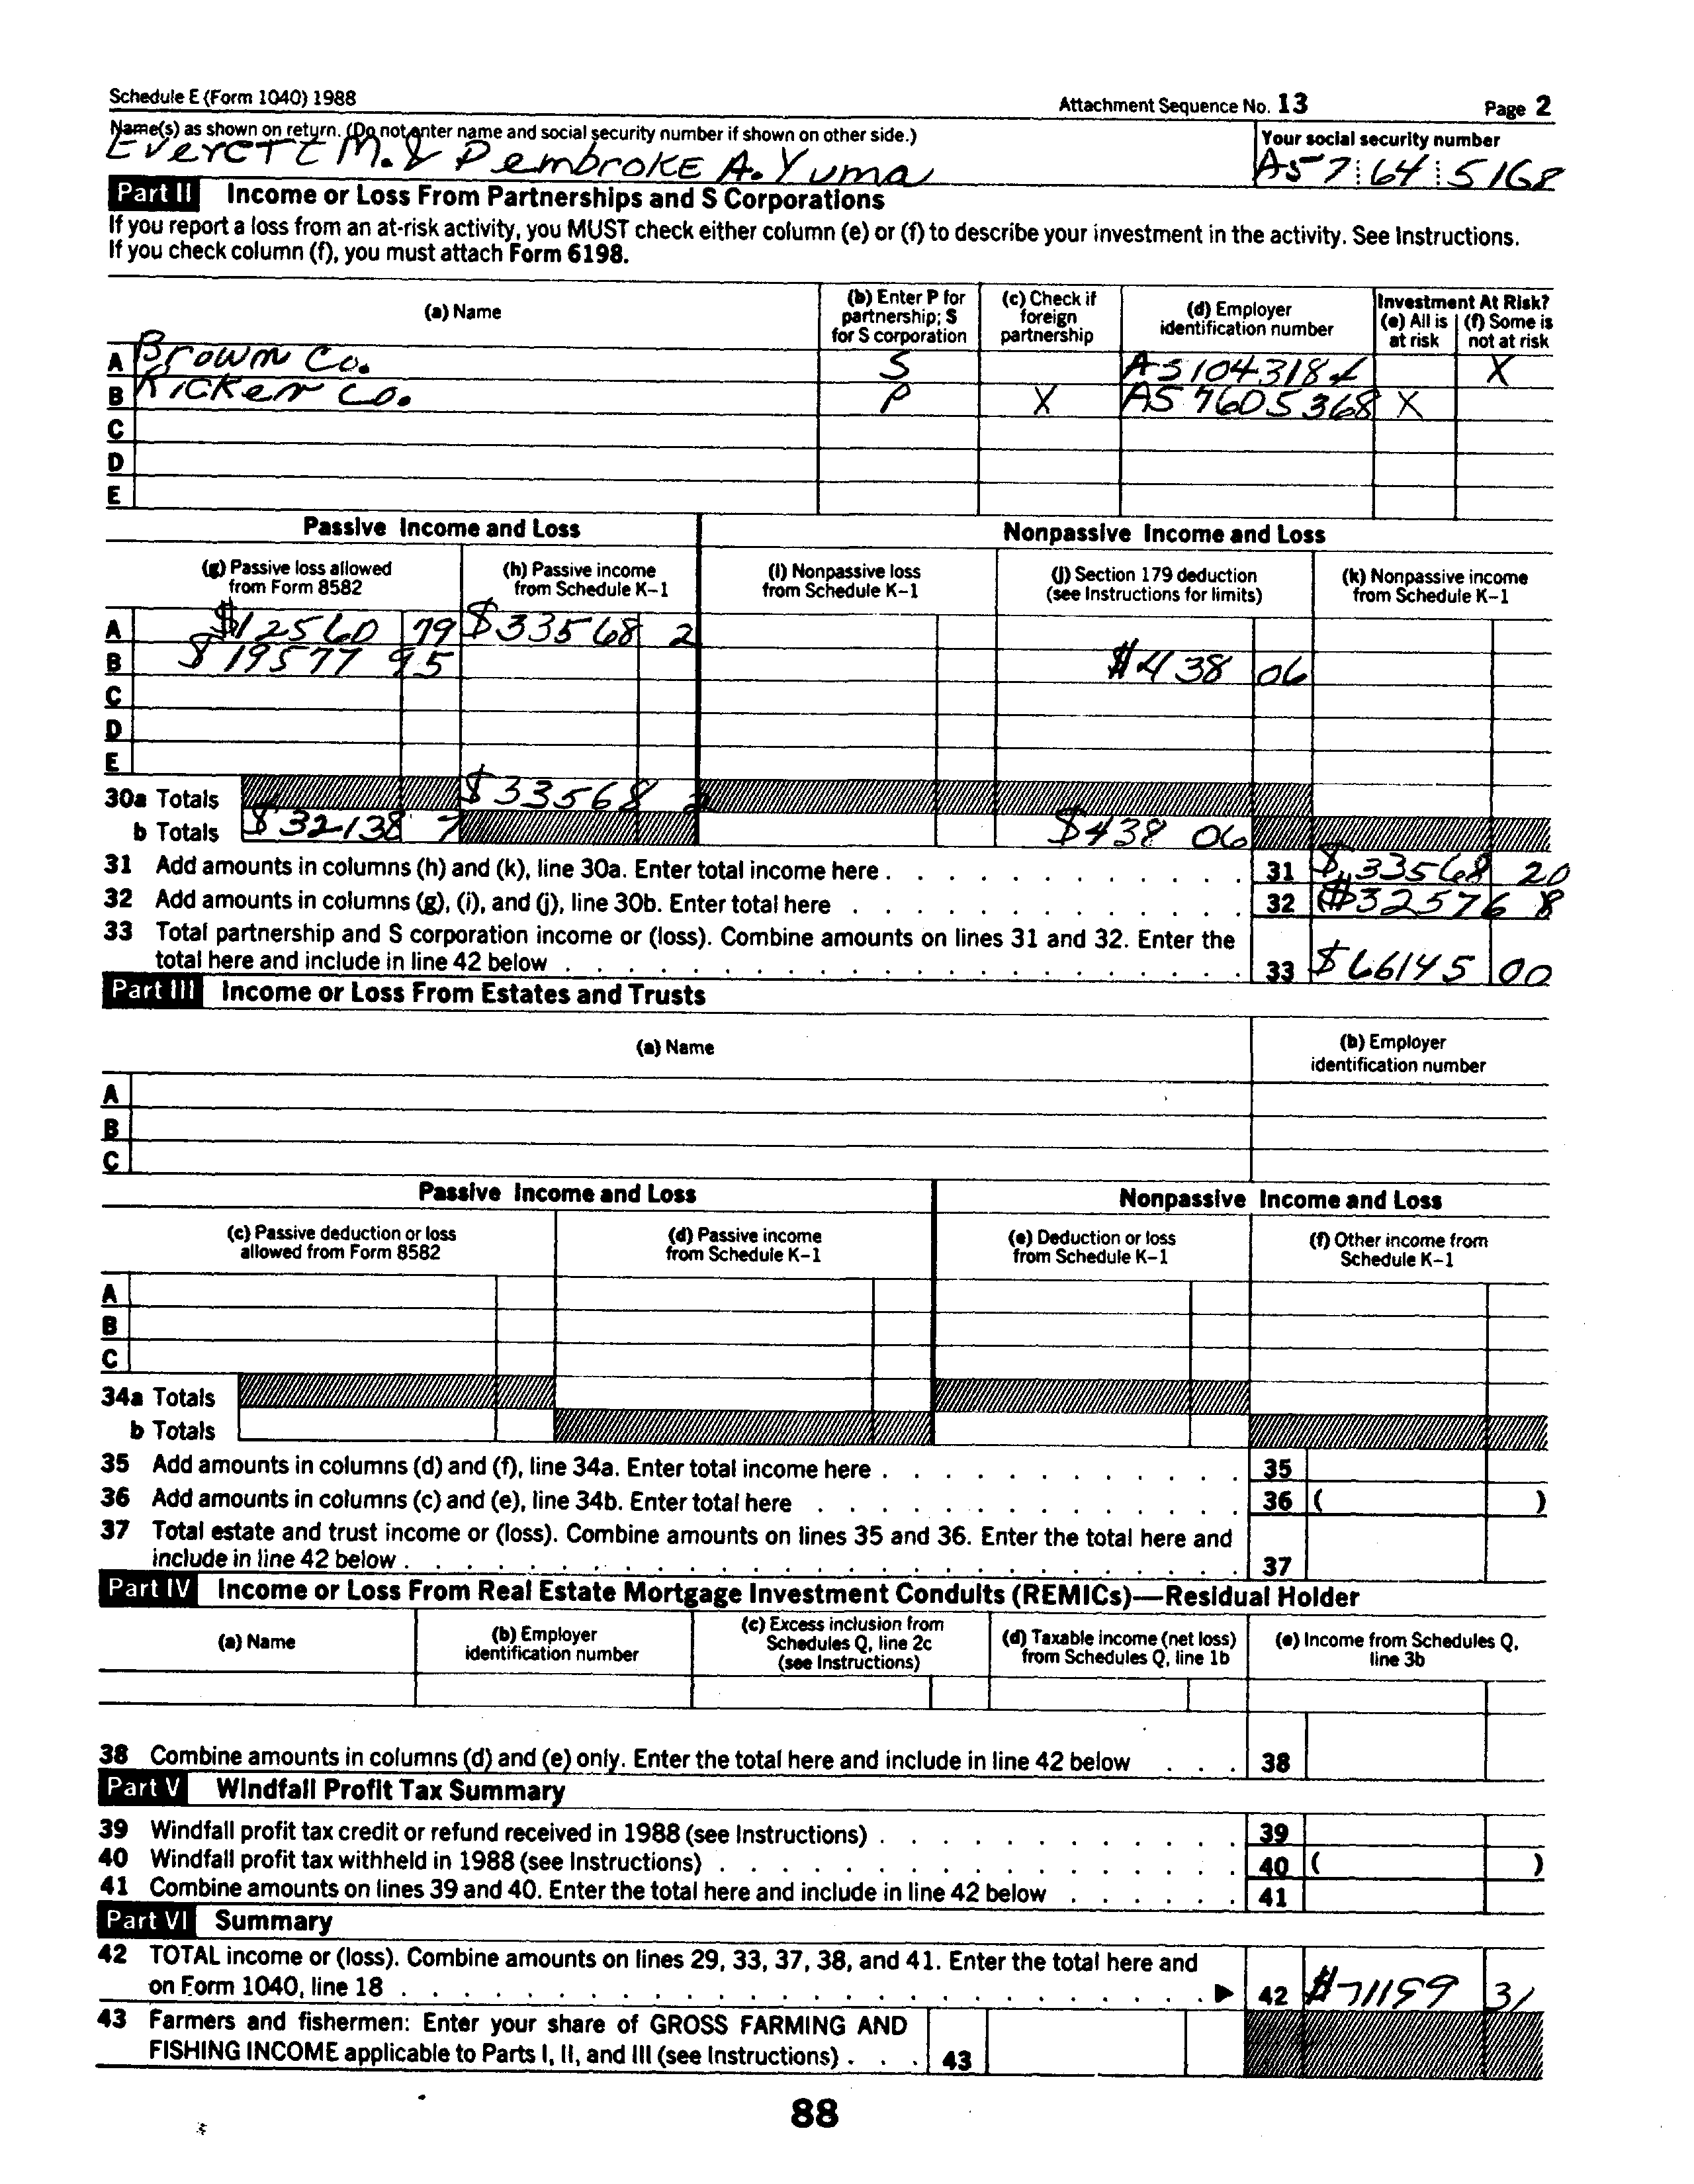 Schedule E (Form 1040) 1988 Attachment Sequence No. 13 Page 2
Name(s) as shown on return. (Do not enter name and social security number if shown on other side.) Your social security number
Everett M. & Pembroke A. Yuma A57 64 5168
Part II Income or Loss From Partnerships and S Corporations
If you report a loss from an at-risk activity, you MUST check either column (e) or (f) to describe your investment in the activity. See Instructions.
If you check column (f), you must attach Form 6198.
(a) Name (b) Enter P for partnership; S for S corporation (c) Check if foreign partnership (d) Employer identification number Investment At Risk? (e) All is at risk (f) Some is not at risk
A Brown Co. S X
B Ricken Co. P X AS 7605368 X
C
D
E
Passive Income and Loss Nonpassive Income and Loss
(g) Passive loss allowed from Form 8582 (h) Passive income from Schedule K-1 (i) Nonpassive loss from Schedule K-1 (j) Section 179 deduction (see Instructions for limits) (k) Nonpassive income from Schedule K-1
A $12560 79 $33568 2
B $19577 95 $438 06
C
D
E
30a Totals $33568 2
b Totals $32138 7 $438 06
31 Add amounts in columns (h) and (k), line 30a. Enter total income here 31 $33568 20
32 Add amounts in columns (g), (i), and (j), line 30b. Enter total here 32 ($32576 8
33 Total partnership and S corporation income or (loss). Combine amounts on lines 31 and 32. Enter the
total here and include in line 42 below 33 $66145 00
Part III Income or Loss From Estates and Trusts
(a) Name (b) Employer identification number
A
B
C
Passive Income and Loss Nonpassive Income and Loss
(c) Passive deduction or loss allowed from Form 8582 (d) Passive income from Schedule K-1 (e) Deduction or loss from Schedule K-1 (f) Other income from Schedule K-1
A
B
C
34a Totals
b Totals
35 Add amounts in columns (d) and (f), line 34a. Enter total income here 35
36 Add amounts in columns (c) and (e), line 34b. Enter total here 36 ( )
37 Total estate and trust income or (loss). Combine amounts on lines 35 and 36. Enter the total here and
include in line 42 below 37
Part IV Income or Loss From Real Estate Mortgage Investment Conduits (REMICs)—Residual Holder
(a) Name (b) Employer identification number (c) Excess inclusion from Schedules Q, line 2c (see Instructions) (d) Taxable income (net loss) from Schedules Q, line 1b (e) Income from Schedules Q, line 3b
38 Combine amounts in columns (d) and (e) only. Enter the total here and include in line 42 below 38
Part V Windfall Profit Tax Summary
39 Windfall profit tax credit or refund received in 1988 (see Instructions) 39
40 Windfall profit tax withheld in 1988 (see Instructions) 40 ( )
41 Combine amounts on lines 39 and 40. Enter the total here and include in line 42 below 41
Part VI Summary
42 TOTAL income or (loss). Combine amounts on lines 29, 33, 37, 38, and 41. Enter the total here and
on Form 1040, line 18 42 $71159 31
43 Farmers and fishermen: Enter your share of GROSS FARMING AND
FISHING INCOME applicable to Parts I, II, and III (see Instructions) 43
88